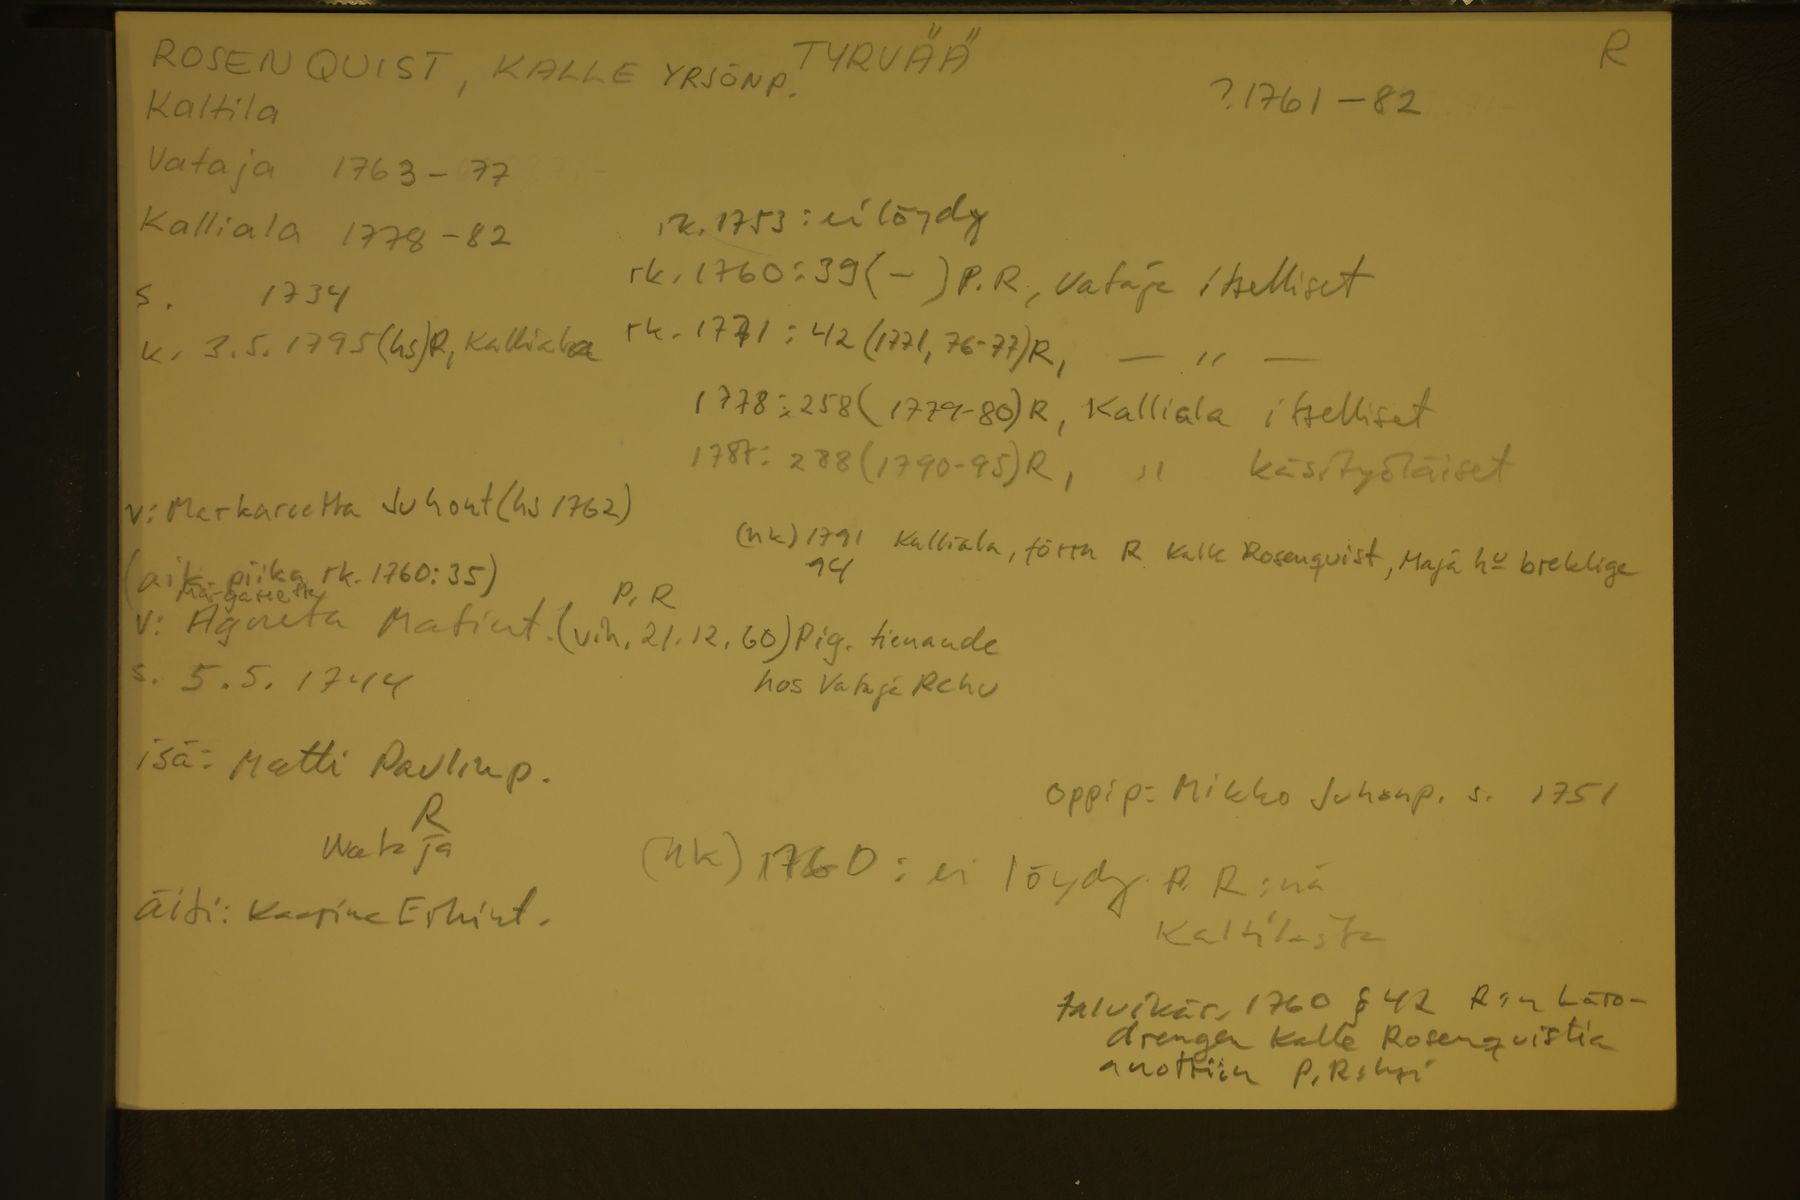 ROSENQUIST, KALLE YRJÖNP. TYRVÄÄ R
Kaltila ?.1761-82
Vataja 1763-77
Kalliala 1778-82 rk. 1753: ei löydy
s. 1734 rk. 1760:39(-) P.R, Vataja itselliset
k. 3.5.1795(hs)R, Kalliala rk. 1771:42(1771, 76-77)R, — " —
1778:258(1779-80)R, Kalliala itselliset
1787:288(1790-95)R, " käsityöläiset
v: Markareetta Juhont(hs 1762)
(rk) 1791 Kalliala, förra R Kalle Rosenquist, Maja hu breklige
94
(aik. piika rk. 1760:35)
Margareetta P.R
v: Agneta Matint.(vih. 21.12.60)Pig. tienande
s. 5.5.1744 hos Vataja Rehu
isä: Matti Paulinp.
R
Wataja
oppip: Mikko Juhonp. s. 1751
(rk) 1760: ei löydy P.R:nä
Kaltilasta
äiti: Kaarina Erkint.
talvikär. 1760 § 42 R:n Läro-
drengen Kalle Rosenquistia
anottiin P.R:ksi